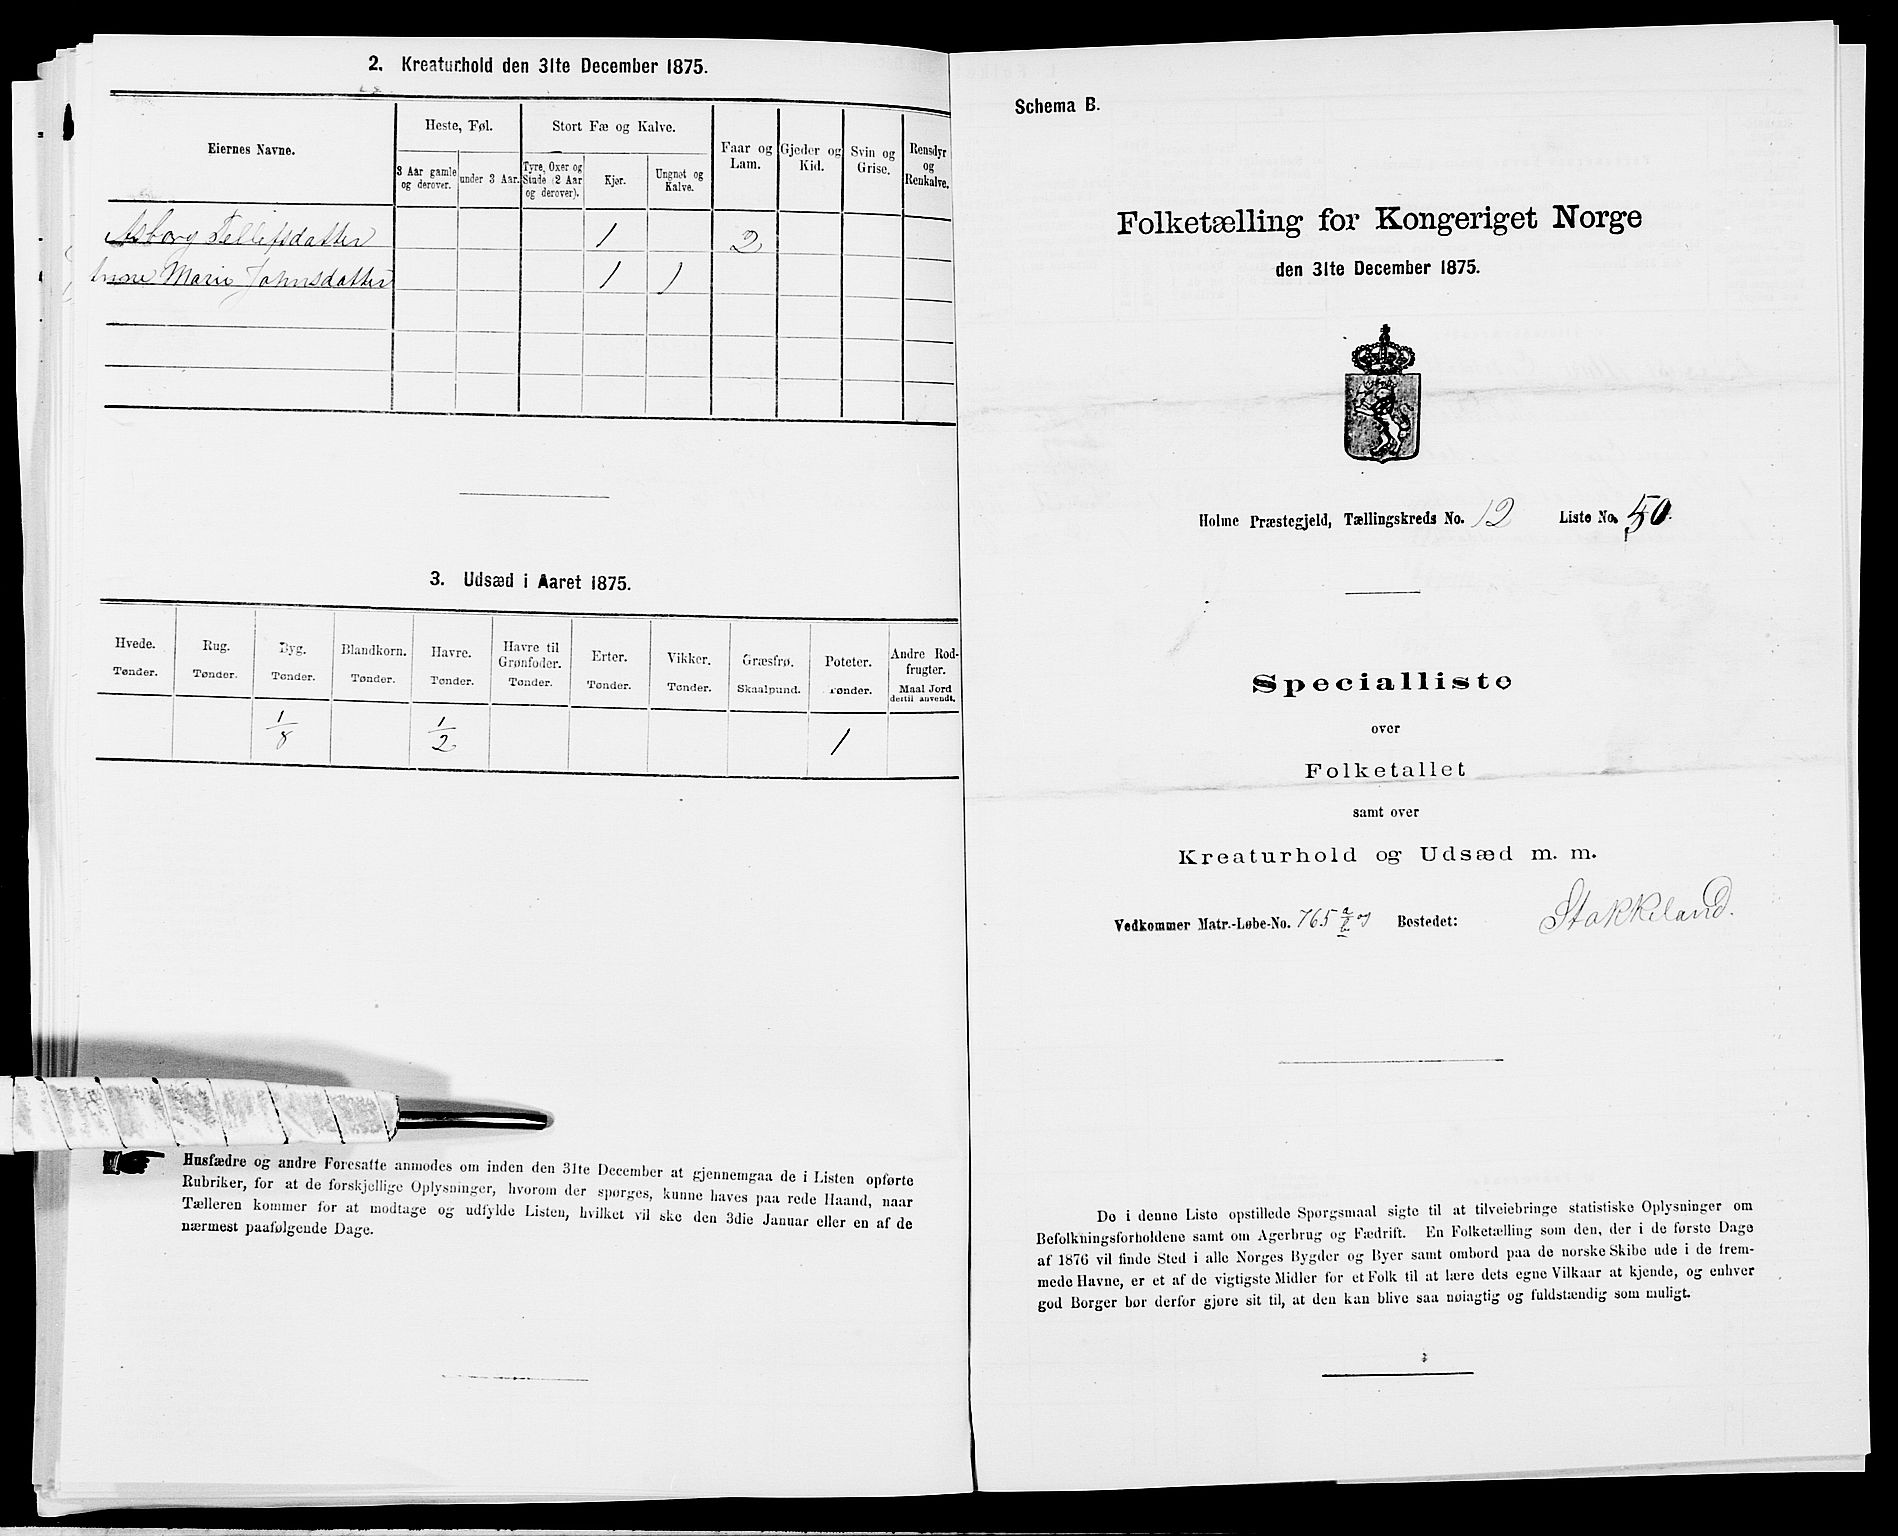 2. Kreaturhold den 31te December 1875.
Eiernes Navne.
Heste, Føl.
Stort Fæ og Kalve.
Faar og Lam.
Gjeder og Kid.
Svin og Grise.
Rensdyr og Renkalve.
3 Aar gamle og derover.
under 3 Aar.
Tyre, Oxer og Stude (2 Aar og derover).
Kjør.
Ungnøt og Kalve.
Asborg Tellefsdatter 1 2
Anne Marie Johnsdatter 1 1
3. Udsæd i Aaret 1875.
Hvede. Tønder.
Rug. Tønder.
Byg. Tønder.
Blandkorn. Tønder.
Havre. Tønder.
Havre til Grønfoder. Tønder.
Erter. Tønder.
Vikker. Tønder.
Græsfrø. Skaalpund.
Poteter. Tønder.
Andre Rodfrugter. Maal Jord dertil anvendt.
1/8 1/2 1
Husfædre og andre Foresatte anmodes om inden den 31te December at gjennemgaa de i Listen opførte
Rubriker, for at de forskjellige Oplysninger, hvorom der spørges, kunne haves paa rede Haand, naar
Tælleren kommer for at modtage og udfylde Listen, hvilket vil ske den 3die Januar eller en af de
nærmest paafølgende Dage.
Schema B.
Folketælling for Kongeriget Norge
den 31te December 1875.
Holme Præstegjeld, Tællingskreds No. 12 Liste No. 50.
Specialliste
over
Folketallet
samt over
Kreaturhold og Udsæd m. m.
Vedkommer Matr.-Løbe-No. 765 Bostedet: Stokkeland.
De i denne Liste opstillede Spørgsmaal sigte til at tilveiebringe statistiske Oplysninger om
Befolkningsforholdene samt om Agerbrug og Fædrift. En Folketælling som den, der i de første Dage
af 1876 vil finde Sted i alle Norges Bygder og Byer samt ombord paa de norske Skibe ude i de frem-
mede Havne, er et af de vigtigste Midler for et Folk til at lære dets egne Vilkaar at kjende, og enhver
god Borger bør derfor gjøre sit til, at den kan blive saa nøiagtig og fuldstændig som muligt.